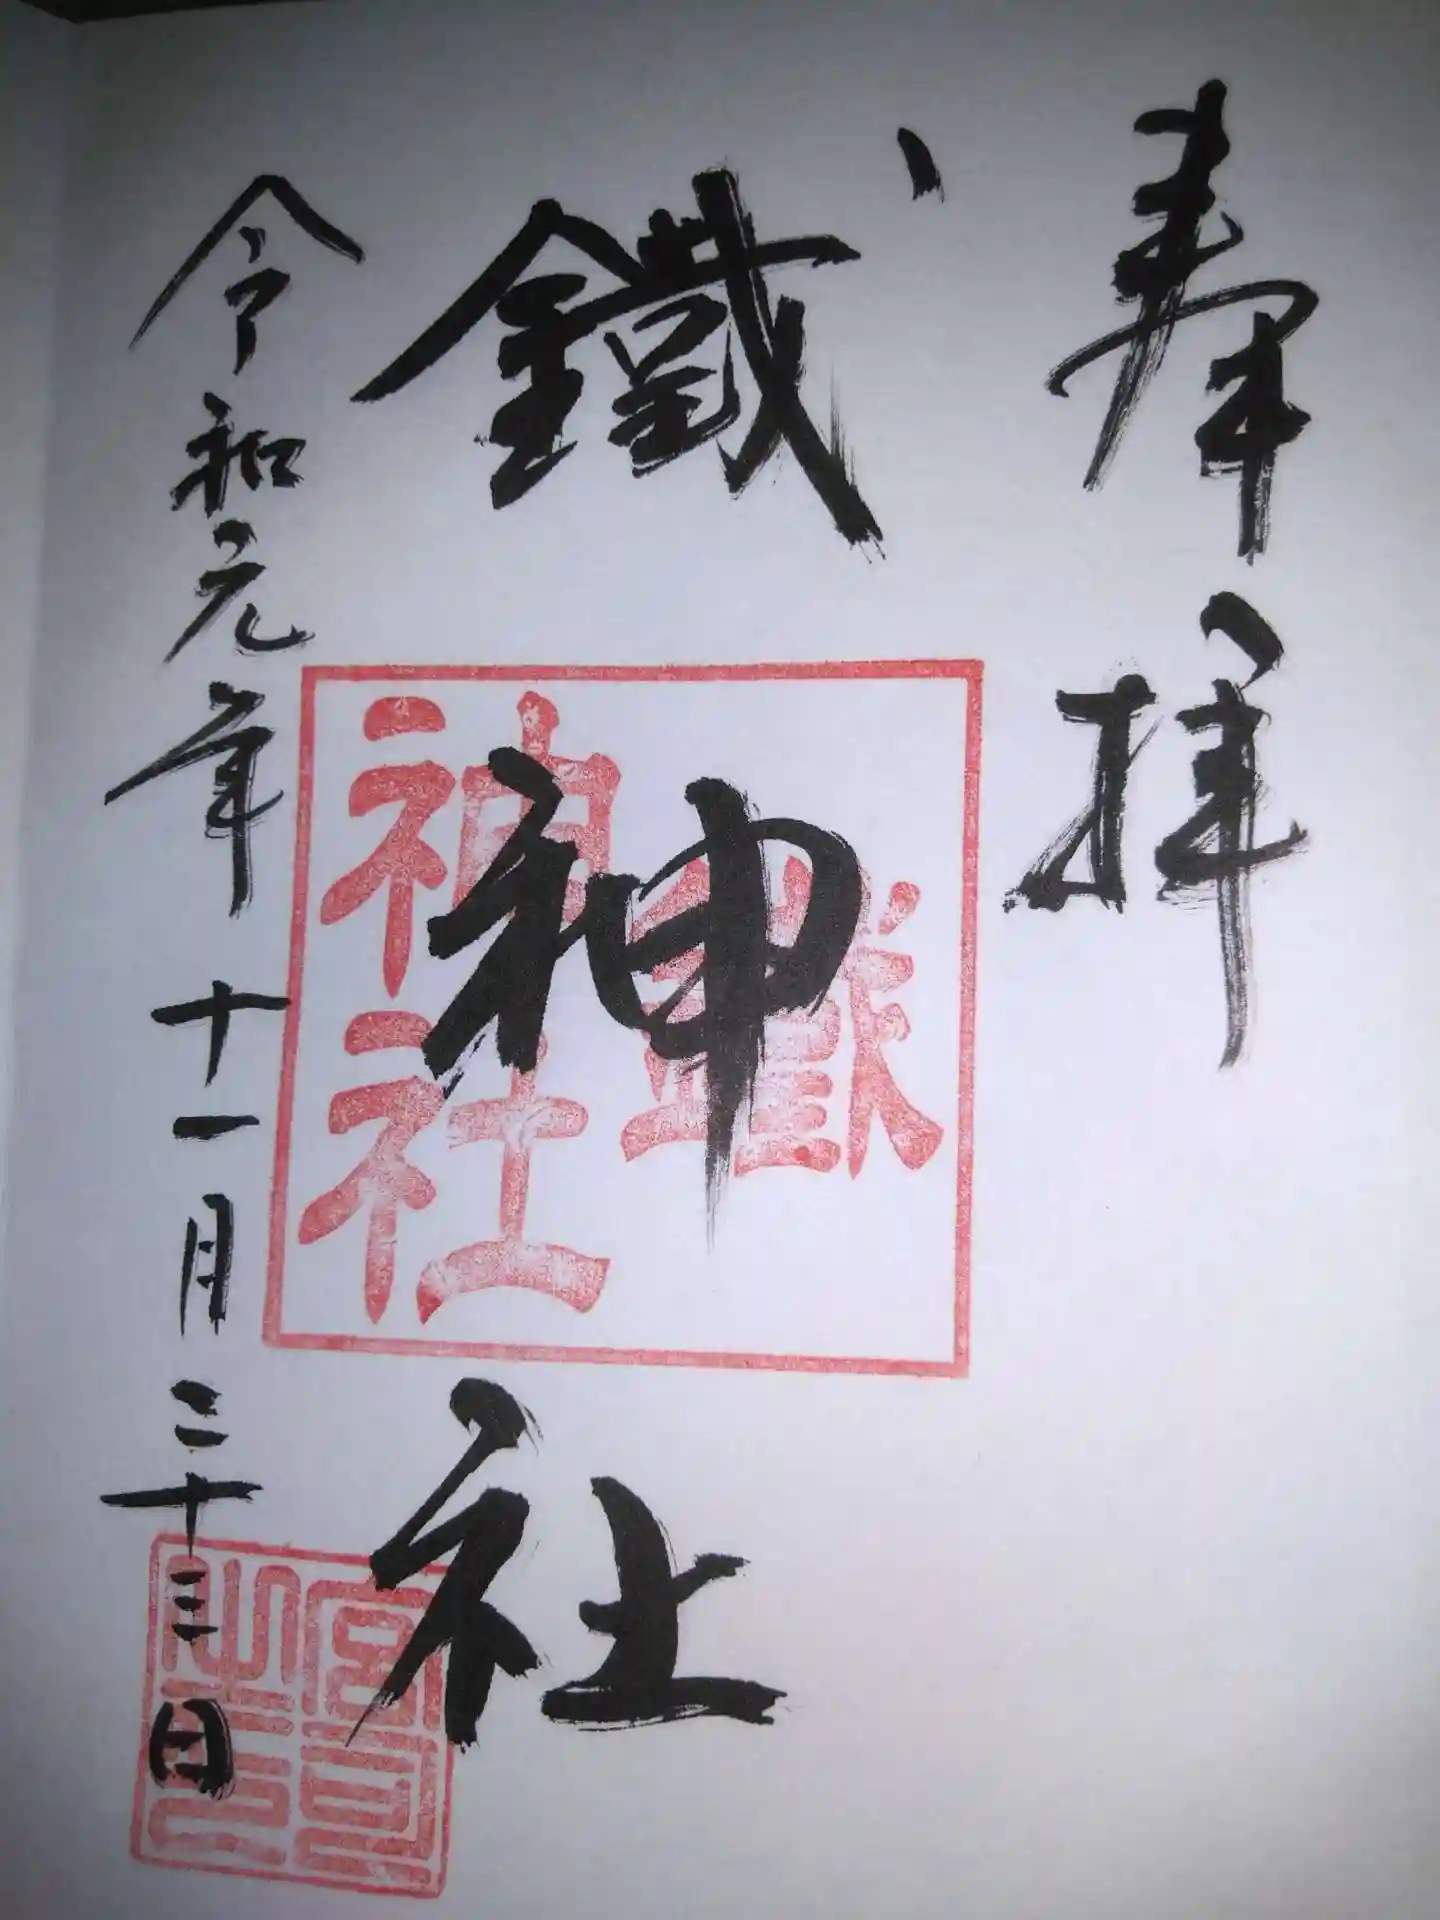 奉拝
鐵神社
鐵神社
令和元年十一月二十三日